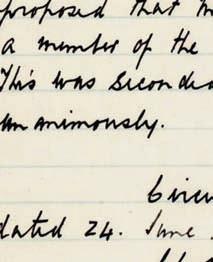 proposed that
a member of the
This was seconded
unanimously.
dated 24. June